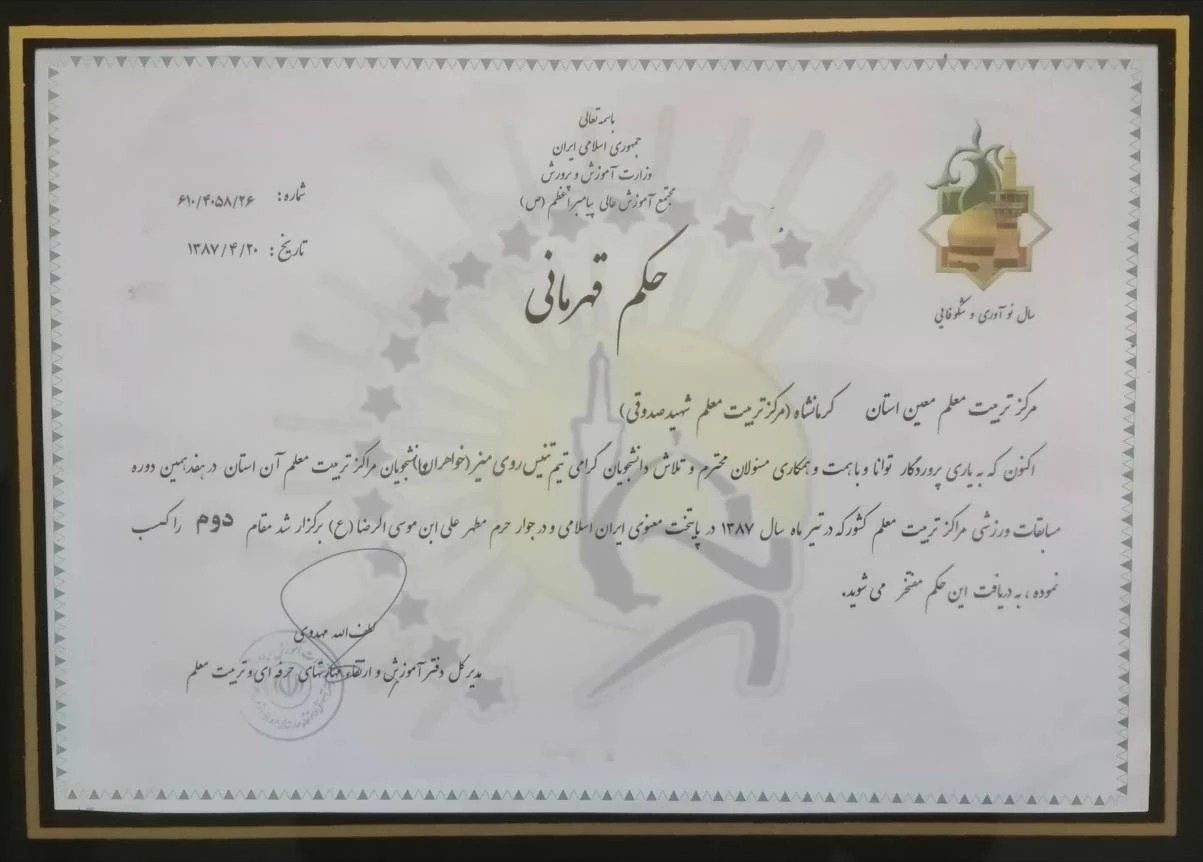 باسمه تعالی
جمهوری اسلامی ایران
وزارت آموزش و پرورش
مجتمع آموزش عالی پیامبر اعظم (ص)
شماره: ۶۱۰/۴۰۵۸/۲۶
تاریخ: ۱۳۸۷/۴/۲۰
سال نوآوری و شکوفایی
حکم قهرمانی
مرکز تربیت معلم معین استان کرمانشاه (مرکز تربیت معلم شهید صدوقی)
اکنون که به یاری پروردگار توانا و با همت و همکاری مسئولان محترم و تلاش دانشجویان گرامی تیم تنیس روی میز (خواهران) دانشجویان مراکز تربیت معلم آن استان در هفدهمین دوره
مسابقات ورزشی مراکز تربیت معلم کشور که در تیر ماه سال ۱۳۸۷ در پایتخت معنوی ایران اسلامی و در جوار حرم مطهر علی ابن موسی الرضا (ع) برگزار شد مقام دوم را کسب
نموده، به دریافت این حکم مفتخر می شوید.
لطف الله مهدوی
مدیر کل دفتر آموزش و ارتقاء مهارتهای حرفه ای و تربیت معلم